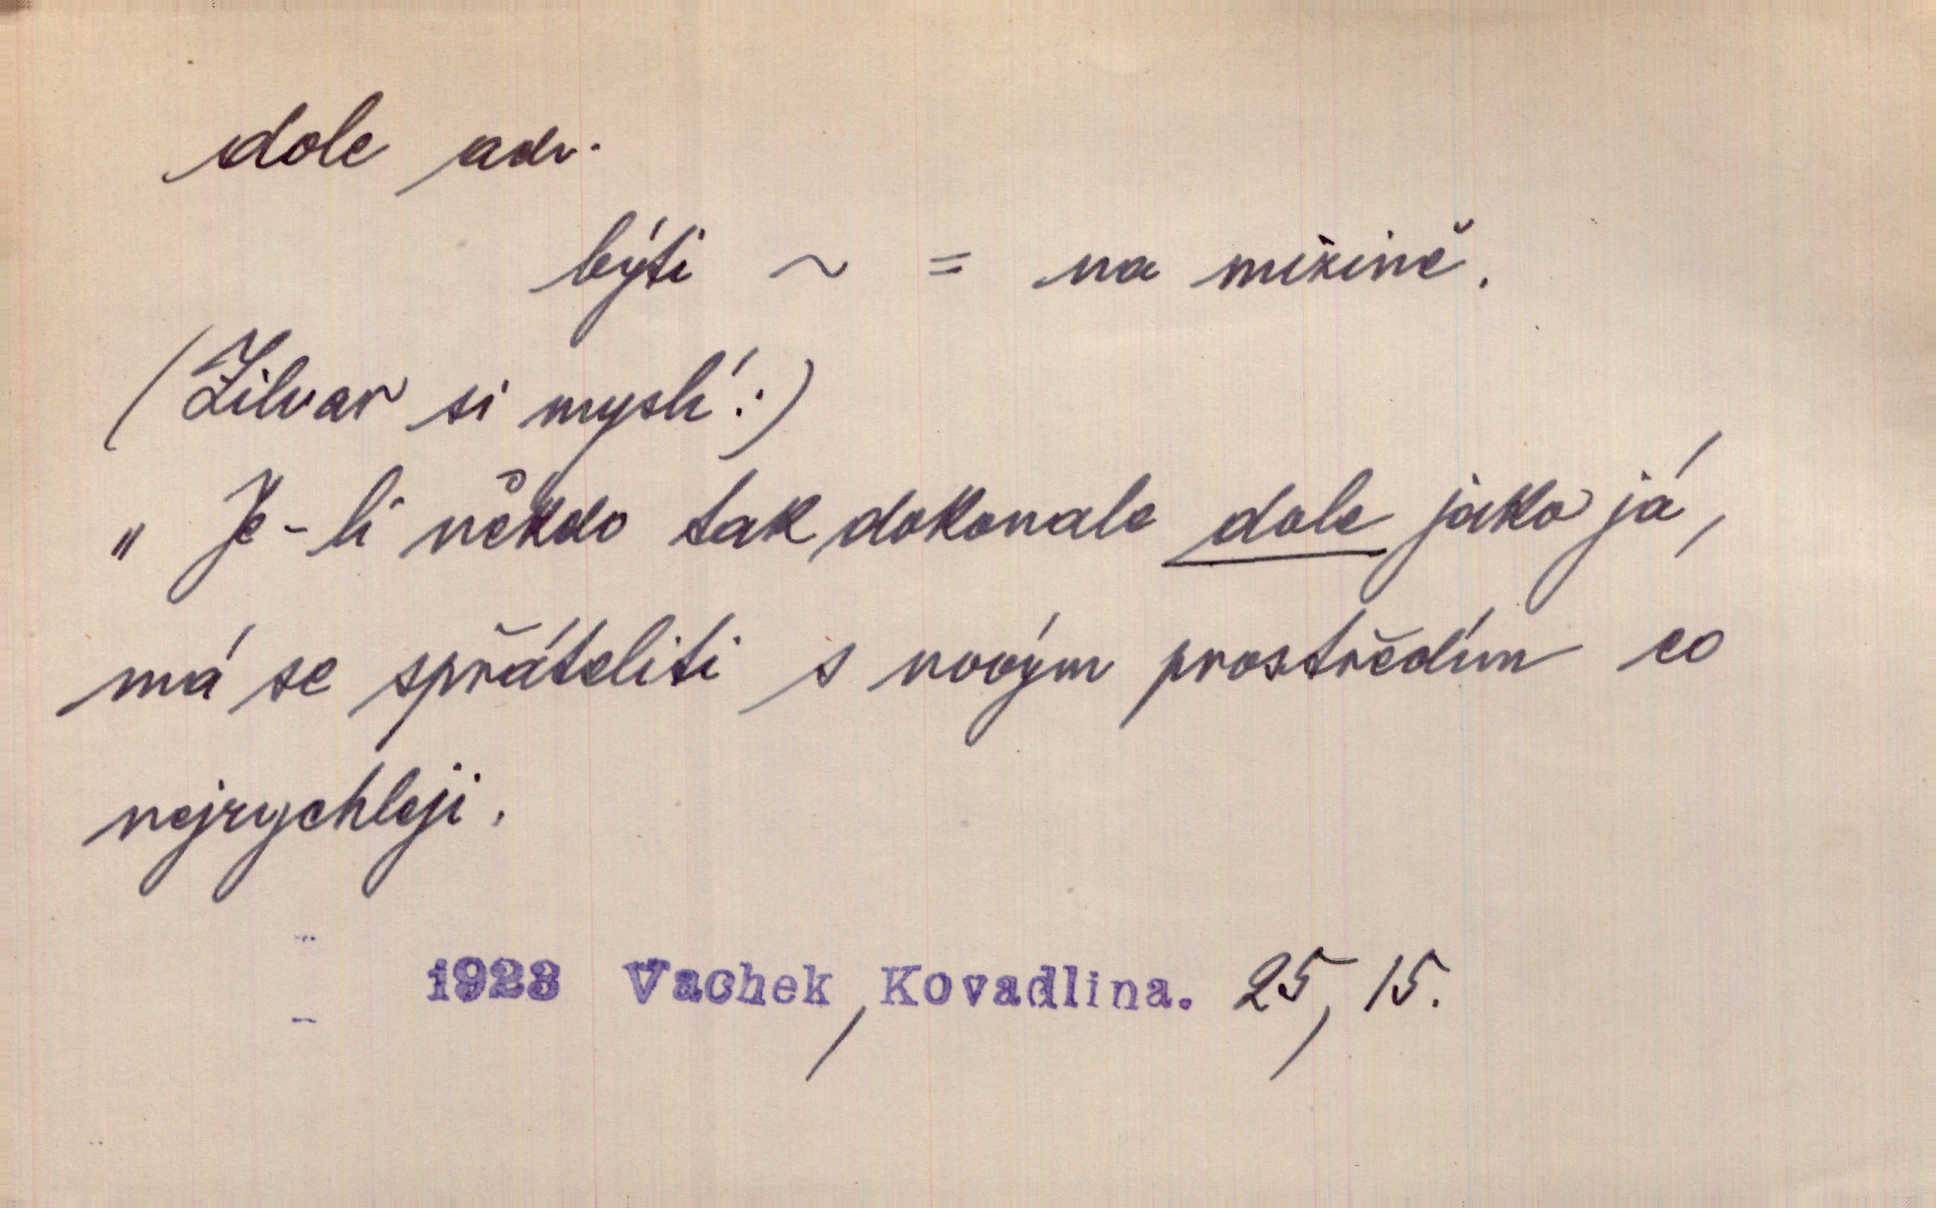 dole adv.
býti ~ = na mižině.
(Žilvar si myslí:)
„ Je-li někdo tak dokonale dole jako já,
má se spřáteliti s novým prostředím co
nejrychleji.
1923 Vachek, Kovadlina. 25, 15.